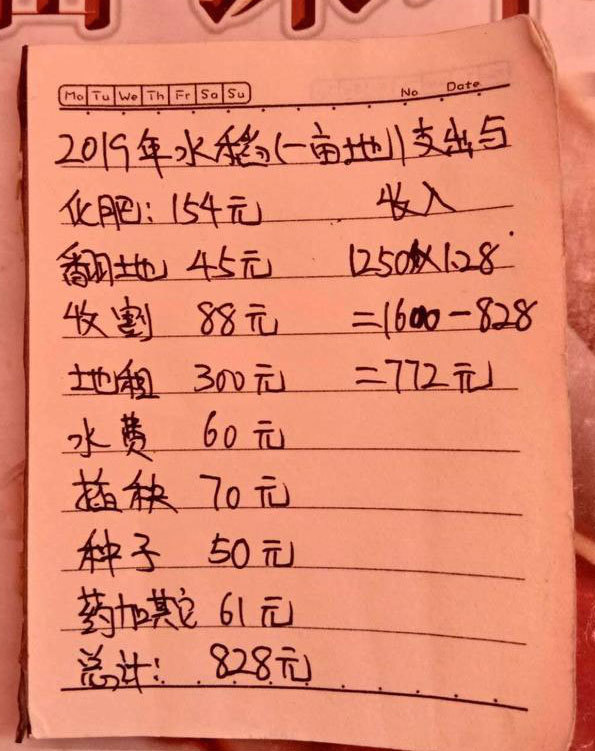 Mo Tu We Th Fr Sa Su No Date
2019年水稻(一亩地)支出与
化肥:154元 收入
翻土地 45元 1250X1.28
收割 88元 =1600-828
土地租 300元 =772元
水费 60元
插秧 70元
种子 50元
药加其它 61元
总计: 828元